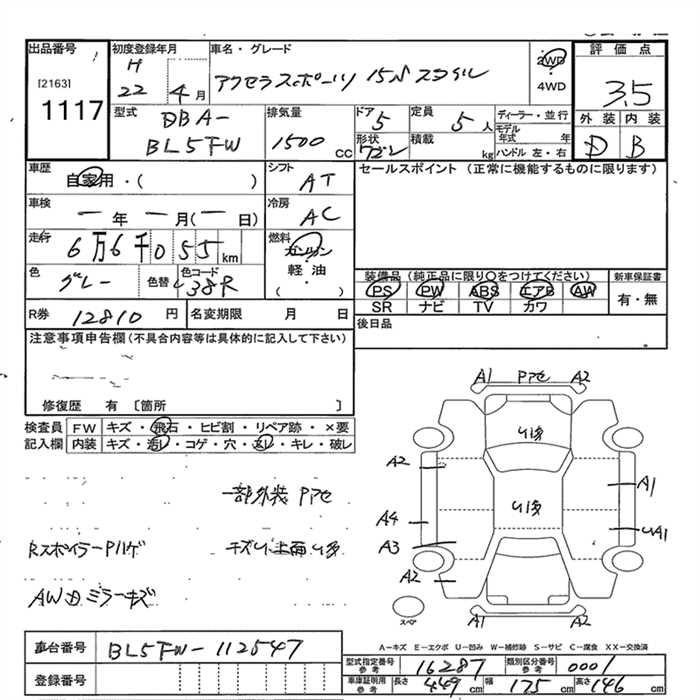 出品番号
[2163]
1117
初度登録年月
H
22 4月
車名・グレード
アクセラスポーツ 15S スタイル
2WD
4WD
評価点
3.5
外装 内装
D B
型式
DBA-
BL5FW
排気量
1500 cc
ドア
5
形状
ワゴン
定員
5人
積載
kg
ディーラー・並行
モデル年式 年
ハンドル 左・右
車歴
自家用・( )
シフト
AT
セールスポイント (正常に機能するものに限ります)
車検
一年一月(一日)
冷房
AC
走行
6万6千055km
燃料
ガソリン
軽油
( )
色
グレー
色替
色コード
38R
装備品(純正品に限り○をつけてください)
PS PW ABS エアB AW
SR ナビ TV カワ
新車保証書
有・無
R券 12810円
名変期限 月 日
後日品
注意事項申告欄(不具合内容等は具体的に記入して下さい)
修復歴 有 〔箇所 〕
検査員記入欄
FW キズ・飛石・ヒビ割・リペア跡・×要
内装 キズ・汚レ・コゲ・穴・スレ・キレ・破レ
一部外装 Pアセ
Rスポイラー Pハゲ
キズU上面U多
AW田ミラーキズ
A1 Pアセ A2
U多
A2
A1
U多
A4
UA1
A3
A2
スペア
A1 A2
A-キズ E-エクボ U-凹み W-補修跡 S-サビ C-腐食 XX-交換済
車台番号 BL5FW-112547
登録番号
型式指定番号 参考 16287
類別区分番号 参考 0001
車庫証明用 参考 長さ 449cm 幅 175cm 高さ 146cm